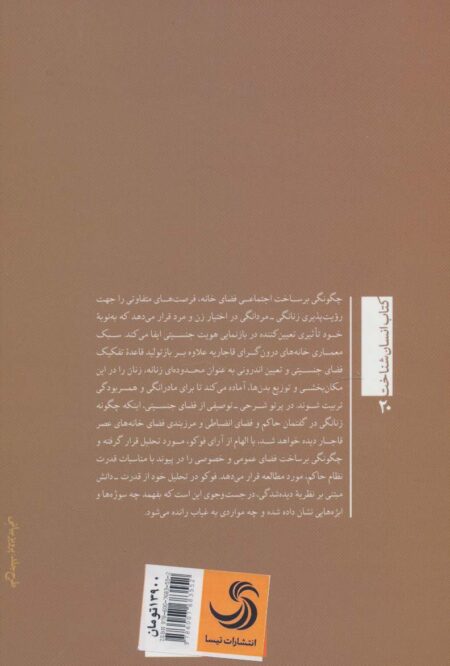 چگونگی برساخت اجتماعی فضای خانه، فرصت‌های متفاوتی را جهت
رؤیت‌پذیری زنانگی ـ مردانگی در اختیار زن و مرد قرار می‌دهد که به‌نوبهٔ
خود تأثیری تعیین‌کننده در بازنمایی هویت جنسیتی ایفا می‌کند. سبک
معماری خانه‌های درون‌گرای قاجاریه علاوه بر بازتولید قاعدهٔ تفکیک
فضای جنسیتی و تعیین اندرونی به عنوان محدوده‌ای زنانه، زنان را در این
مکان‌بخشی و توزیع بدن‌ها، آماده می‌کند تا برای مادرانگی و همسربودگی
تربیت شوند. در پرتو شرحی ـ توصیفی از فضای جنسیتی، اینکه چگونه
زنانگی در گفتمان حاکم و فضای انضباطی و مرزبندی فضای خانه‌های عصر
قاجار دیده خواهد شد، با الهام از آرای فوکو، مورد تحلیل قرار گرفته و
چگونگی برساخت فضای عمومی و خصوصی را در پیوند با مناسبات قدرت
نظام حاکم، مورد مطالعه قرار می‌دهد. فوکو در تحلیل خود از قدرت ـ دانش
مبتنی بر نظریهٔ دیده‌شدگی، در جست‌وجوی این است که بفهمد چه سوژه‌ها و
ابژه‌هایی نشان داده شده و چه مواردی به غیاب رانده می‌شود.
کتاب انسان‌شناخت
۲۰
۱۳۹۰۰ تومان
انتشارات تیسا